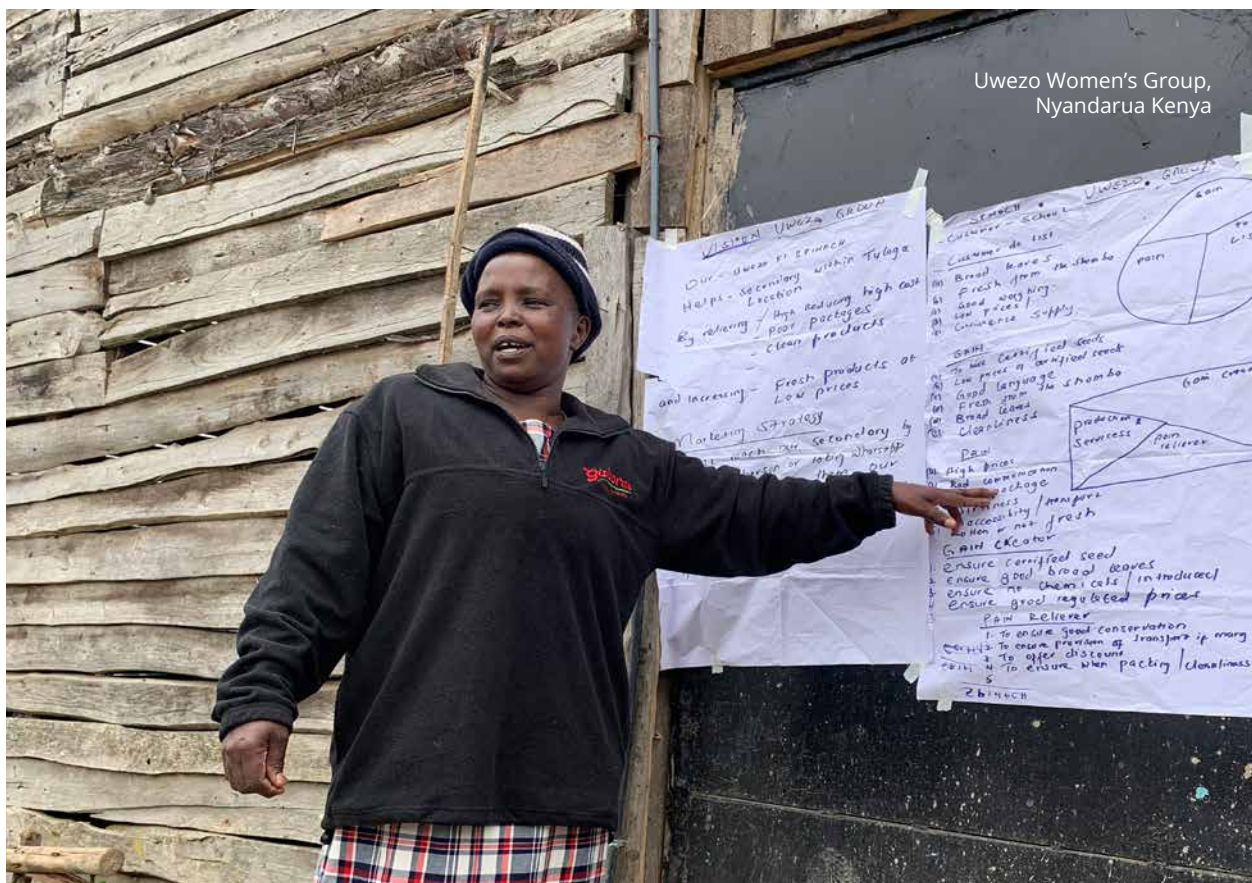 Uwezo Women's Group,
Nyandarua Kenya
VISION UWEZO GROUP
OUR - UWEZO FI SPINACH
Helps - Secondary within Tulaga
Location
By relieving / High Reducing high cost
- Poor packages
- Clean products
and increasing - Fresh products at
Low prices
Marketing Strategy
secondary by
or using Whatsapp
them our
UWEZO. GROUP
- Customer - School
Customer do list
Broad leaves
Fresh from the shamba
Good weighing
Low prices /
Supply
GAIN
To use certified seeds
Low prices of certified seeds
Good language
Fresh from the shamba
Broad leaves
Cleanliness
PAIN
High prices
Bad communication
package
accessibity / transport
or not fresh
GAIN CREATOR
1 ensure certified seed
2 ensure good broad leaves
3 ensure no chemicals / introduced
4 ensure good regulated prices
PAIN Reliever
1. To ensure good conservation
2 To ensure provision of transport if many
3 To offer discount
4 To ensure when packing / cleanliness
5
Gain
pain
Gain
production &
servicess
pain
reliever